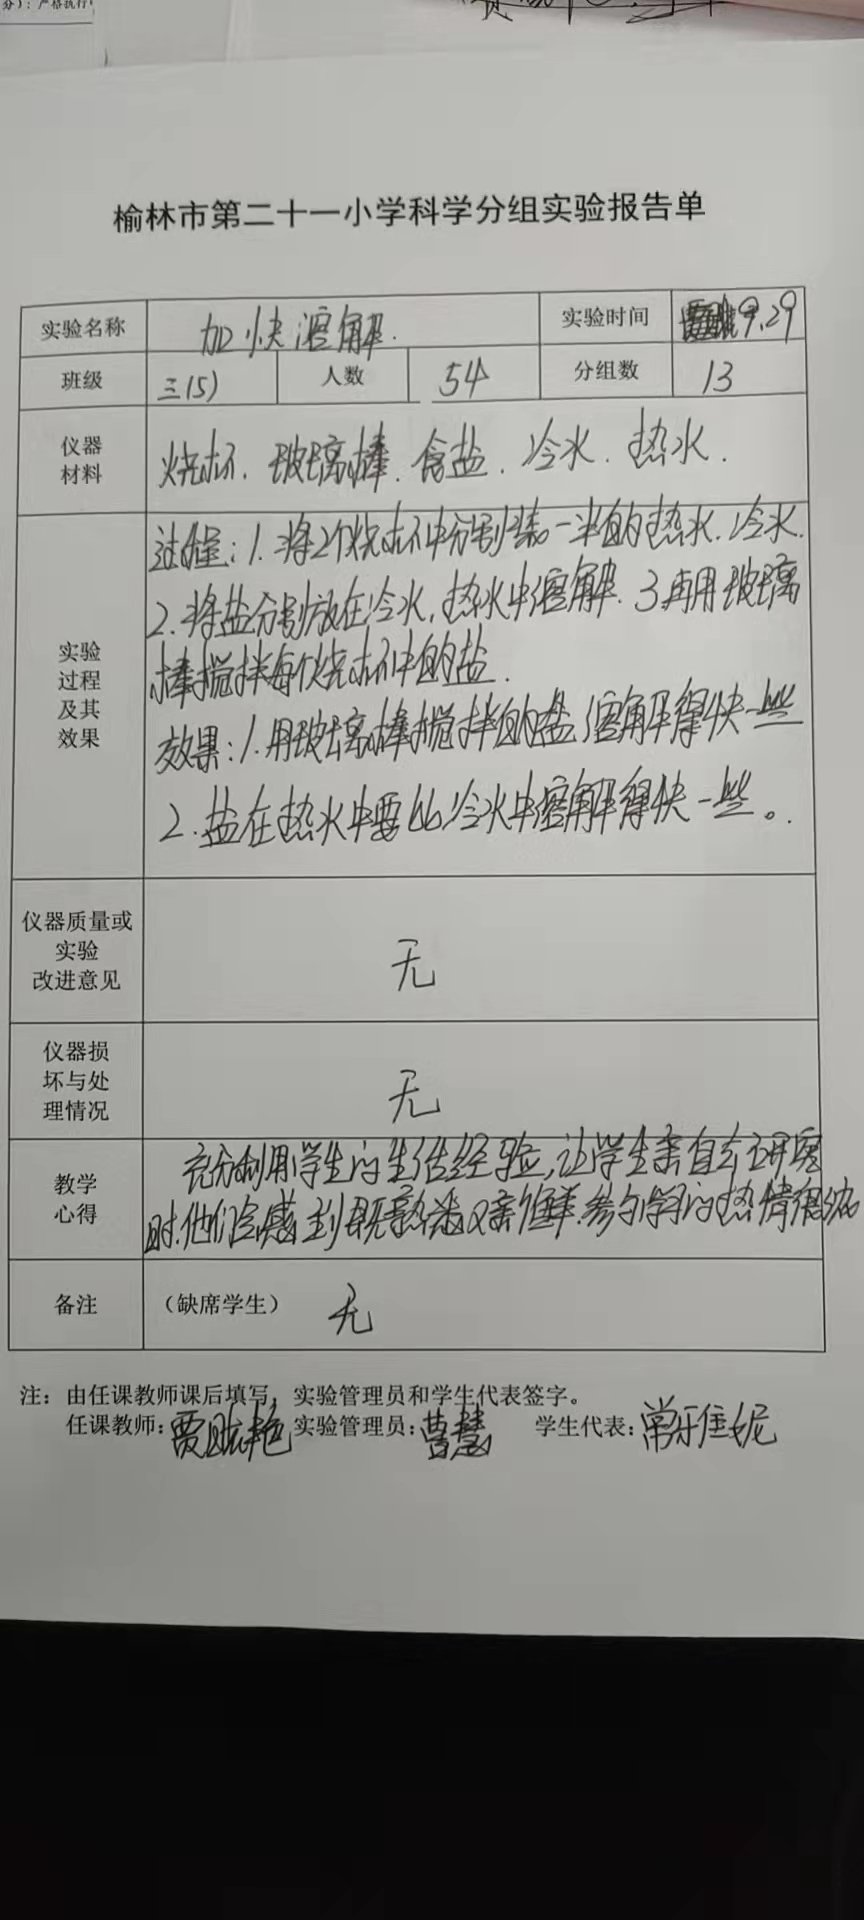 分）：严格执行
榆林市第二十一小学科学分组实验报告单
实验名称 加快溶解. 实验时间 9.29
班级 三(5) 人数 54 分组数 13
仪器
材料
烧杯. 玻璃棒. 食盐. 冷水. 热水.
实验
过程
及其
效果
过程: 1. 将2个烧杯中分别装一半的热水. 冷水.
2. 将盐分别放在冷水, 热水中溶解. 3 再用玻璃
棒搅拌每个烧杯中的盐.
效果: 1. 用玻璃棒搅拌的盐溶解得快一些
2. 盐在热水中要比冷水中溶解得快一些。
仪器质量或
实验
改进意见
无
仪器损
坏与处
理情况
无
教学
心得
充分利用学生的生活经验, 让学生亲自去研究
时. 他们会感到既熟悉又新鲜. 参与学习的热情很浓
备注 （缺席学生） 无
注：由任课教师课后填写，实验管理员和学生代表签字。
任课教师: 贾 艳 实验管理员: 曹慧 学生代表: 常乐佳妮